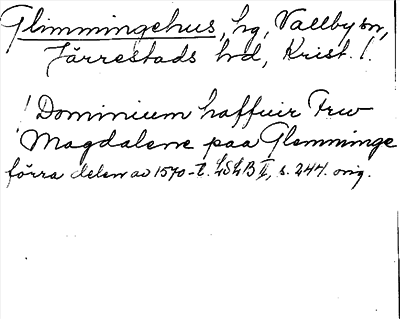 Glimmingehus, hg, Vallby sn,
Järrestads hd, Krist. l.
! Dominium haffuir Frw
Magdalene paa Glemminge
förra delen av 1570-t. LSLB II, s. 244. orig.